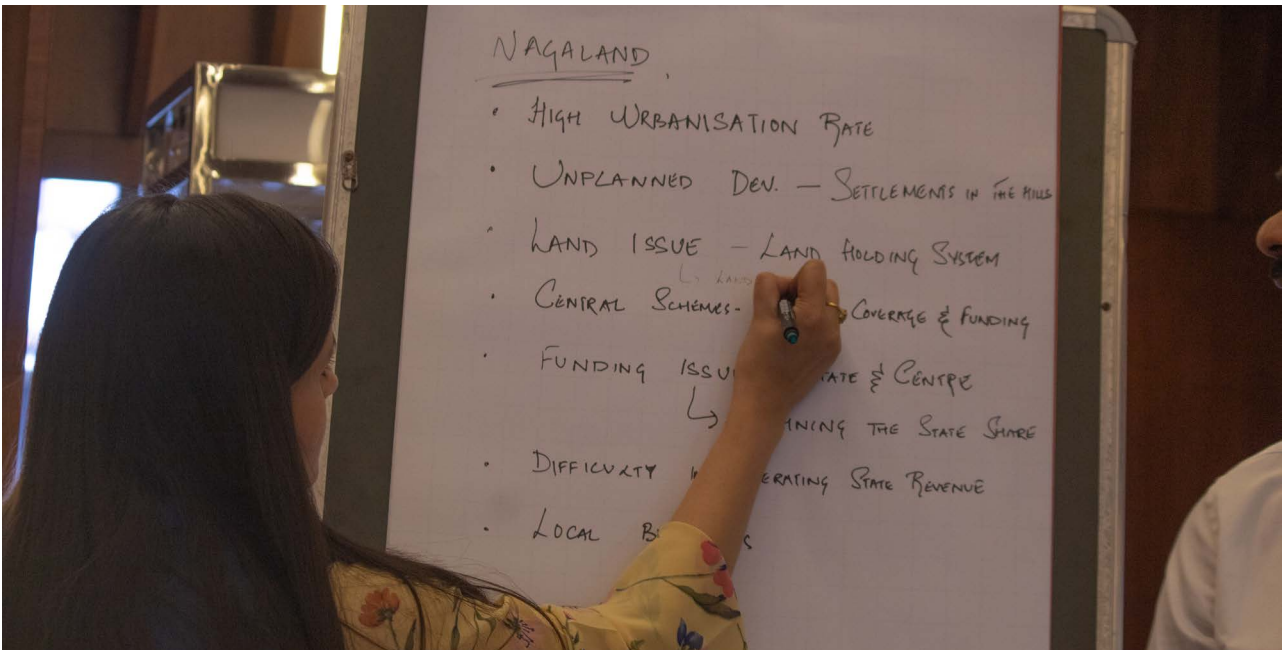 NAGALAND
• HIGH URBANISATION RATE
• UNPLANNED DEV. — SETTLEMENTS IN THE HILLS
• LAND ISSUE — LAND HOLDING SYSTEM
↳ LAND
• CENTRAL SCHEMES - COVERAGE & FUNDING
• FUNDING & CENTRE
↳ THE STATE SHARE
• DIFFICULTY STATE REVENUE
• LOCAL